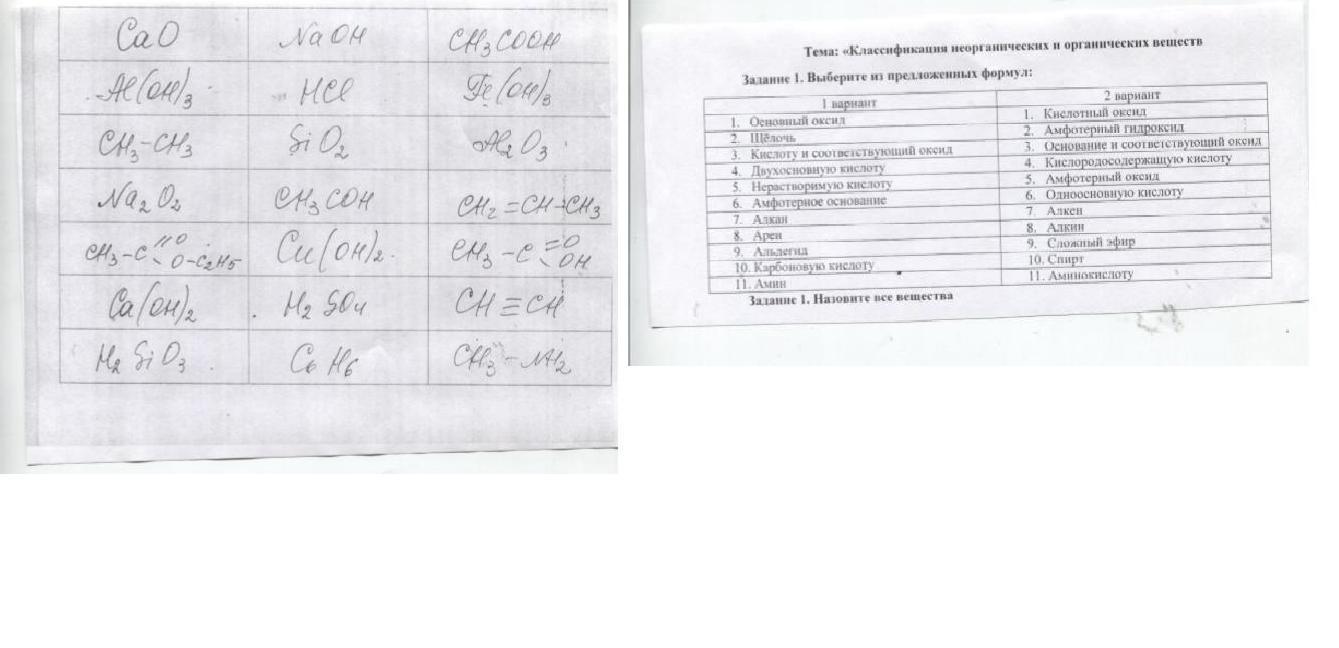 CaO NaOH CH3COOH
Al(OH)3 HCl Fe(OH)3
CH3-CH3 SiO2 Al2O3
Na2O2 CH3COH CH2=CH-CH3
CH3-C=O O-C2H5 Cu(OH)2 CH3-C=O OH
Ca(OH)2 H2SO4 CH≡CH
H2SiO3 C6H6 CH3-NH2
Тема: «Классификация неорганических и органических веществ
Задание 1. Выберите из предложенных формул:
1 вариант 2 вариант
1. Основный оксид 1. Кислотный оксид
2. Щёлочь 2. Амфотерный гидроксид
3. Кислоту и соответствующий оксид 3. Основание и соответствующий оксид
4. Двухосновную кислоту 4. Кислородосодержащую кислоту
5. Нерастворимую кислоту 5. Амфотерный оксид
6. Амфотерное основание 6. Одноосновную кислоту
7. Алкан 7. Алкен
8. Арен 8. Алкин
9. Альдегид 9. Сложный эфир
10. Карбоновую кислоту 10. Спирт
11. Амин 11. Аминокислоту
Задание 1. Назовите все вещества